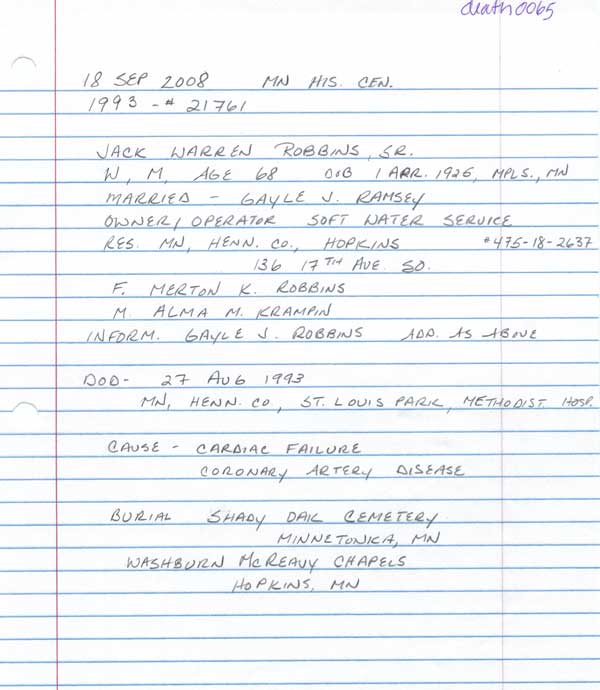 death0065
18 SEP 2008 MN HIS. CEN.
1993 - # 21761
JACK WARREN ROBBINS, SR.
W, M, AGE 68 DOB 1 APR. 1925, MPLS., MN
MARRIED - GAYLE J. RAMSEY
OWNER/OPERATOR SOFT WATER SERVICE
RES. MN, HENN. CO., HOPKINS #475-18-2637
136 17TH AVE. SO.
F. MERTON K. ROBBINS
M. ALMA M. KRAMPIN
INFORM. GAYLE J. ROBBINS ADD. AS ABOVE
DOD - 27 AUG 1993
MN, HENN. CO., ST. LOUIS PARK, METHODIST HOSP.
CAUSE - CARDIAC FAILURE
CORONARY ARTERY DISEASE
BURIAL SHADY OAK CEMETERY
MINNETONKA, MN
WASHBURN McREAVY CHAPELS
HOPKINS, MN